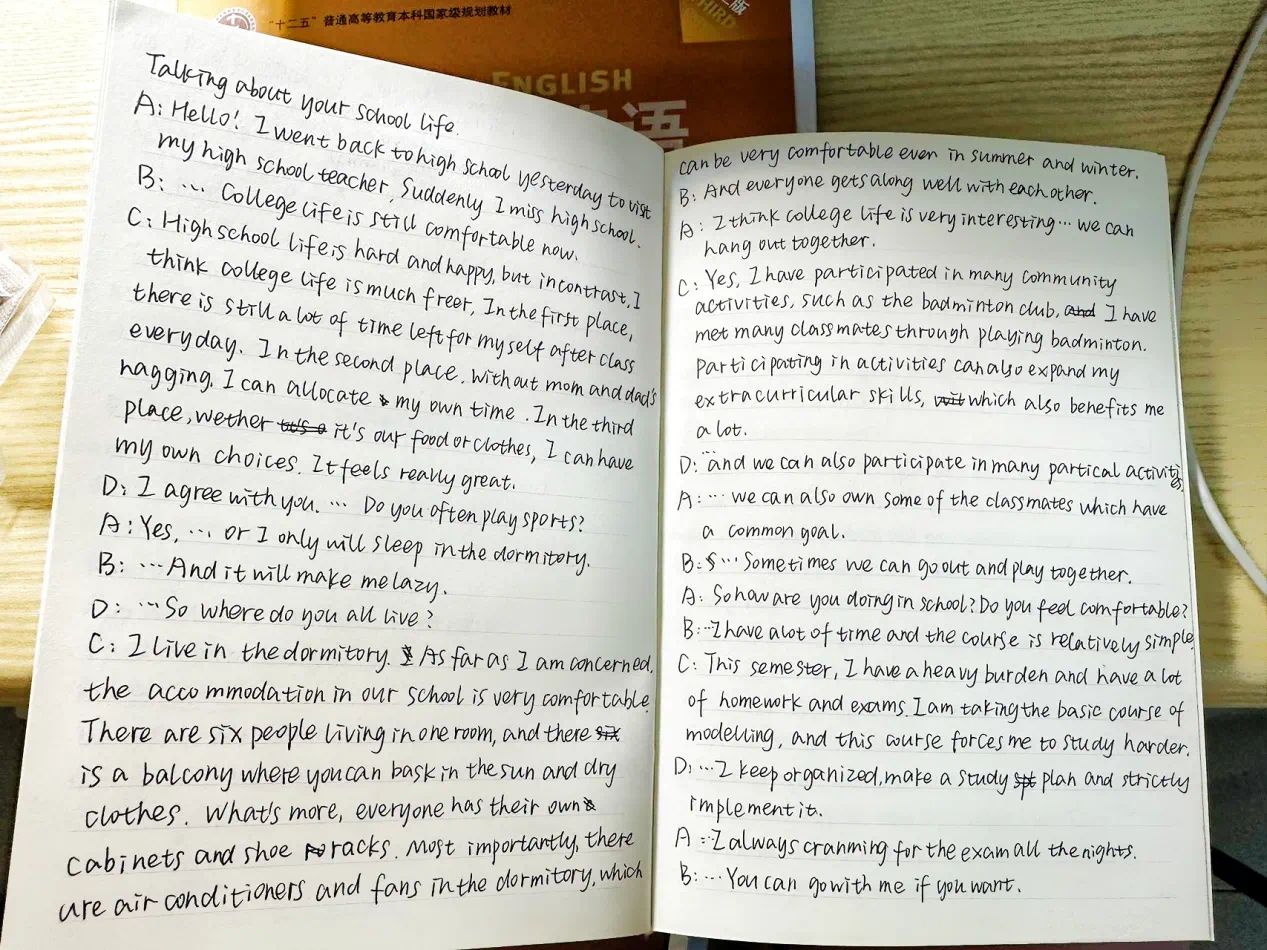 "十二五"普通高等教育本科国家级规划教材
THIRD
ENGLISH
语
Talking about your school life.
A: Hello! I went back to high school yesterday to visit
my high school teacher, Suddenly I miss high school.
B: ... College life is still comfortable now.
C: High school life is hard and happy, but in contrast, I
think college life is much freer, In the first place,
there is still a lot of time left for myself after class
every day. In the second place. without mom and dad's
nagging. I can allocate my own time. In the third
place, wether it's our food or clothes, I can have
my own choices. It feels really great.
D: I agree with you. ... Do you often play sports?
A: Yes, ... or I only will sleep in the dormitory.
B: ...And it will make me lazy.
D: ...So where do you all live?
C: I live in the dormitory. As far as I am concerned,
the accommodation in our school is very comfortable.
There are six people living in one room, and there
is a balcony where you can bask in the sun and dry
clothes. What's more, everyone has their own
cabinets and shoe racks. Most importantly, there
are air conditioners and fans in the dormitory, which
can be very comfortable even in summer and winter.
B: And everyone gets along well with each other.
A: I think college life is very interesting... we can
hang out together.
C: Yes, I have participated in many community
activities, such as the badminton club, I have
met many classmates through playing badminton.
Participating in activities can also expand my
extracurricular skills, which also benefits me
a lot.
D: ...and we can also participate in many partical activitis
A: ... we can also own some of the classmates which have
a common goal.
B: ... Sometimes we can go out and play together.
A: So how are you doing in school? Do you feel comfortable?
B: ...I have a lot of time and the course is relatively simple.
C: This semester, I have a heavy burden and have a lot
of homework and exams. I am taking the basic course of
modelling, and this course forces me to study harder.
D: ...I keep organized, make a study plan and strictly
implement it.
A: ...I always cranming for the exam all the nights.
B: ...You can go with me if you want.